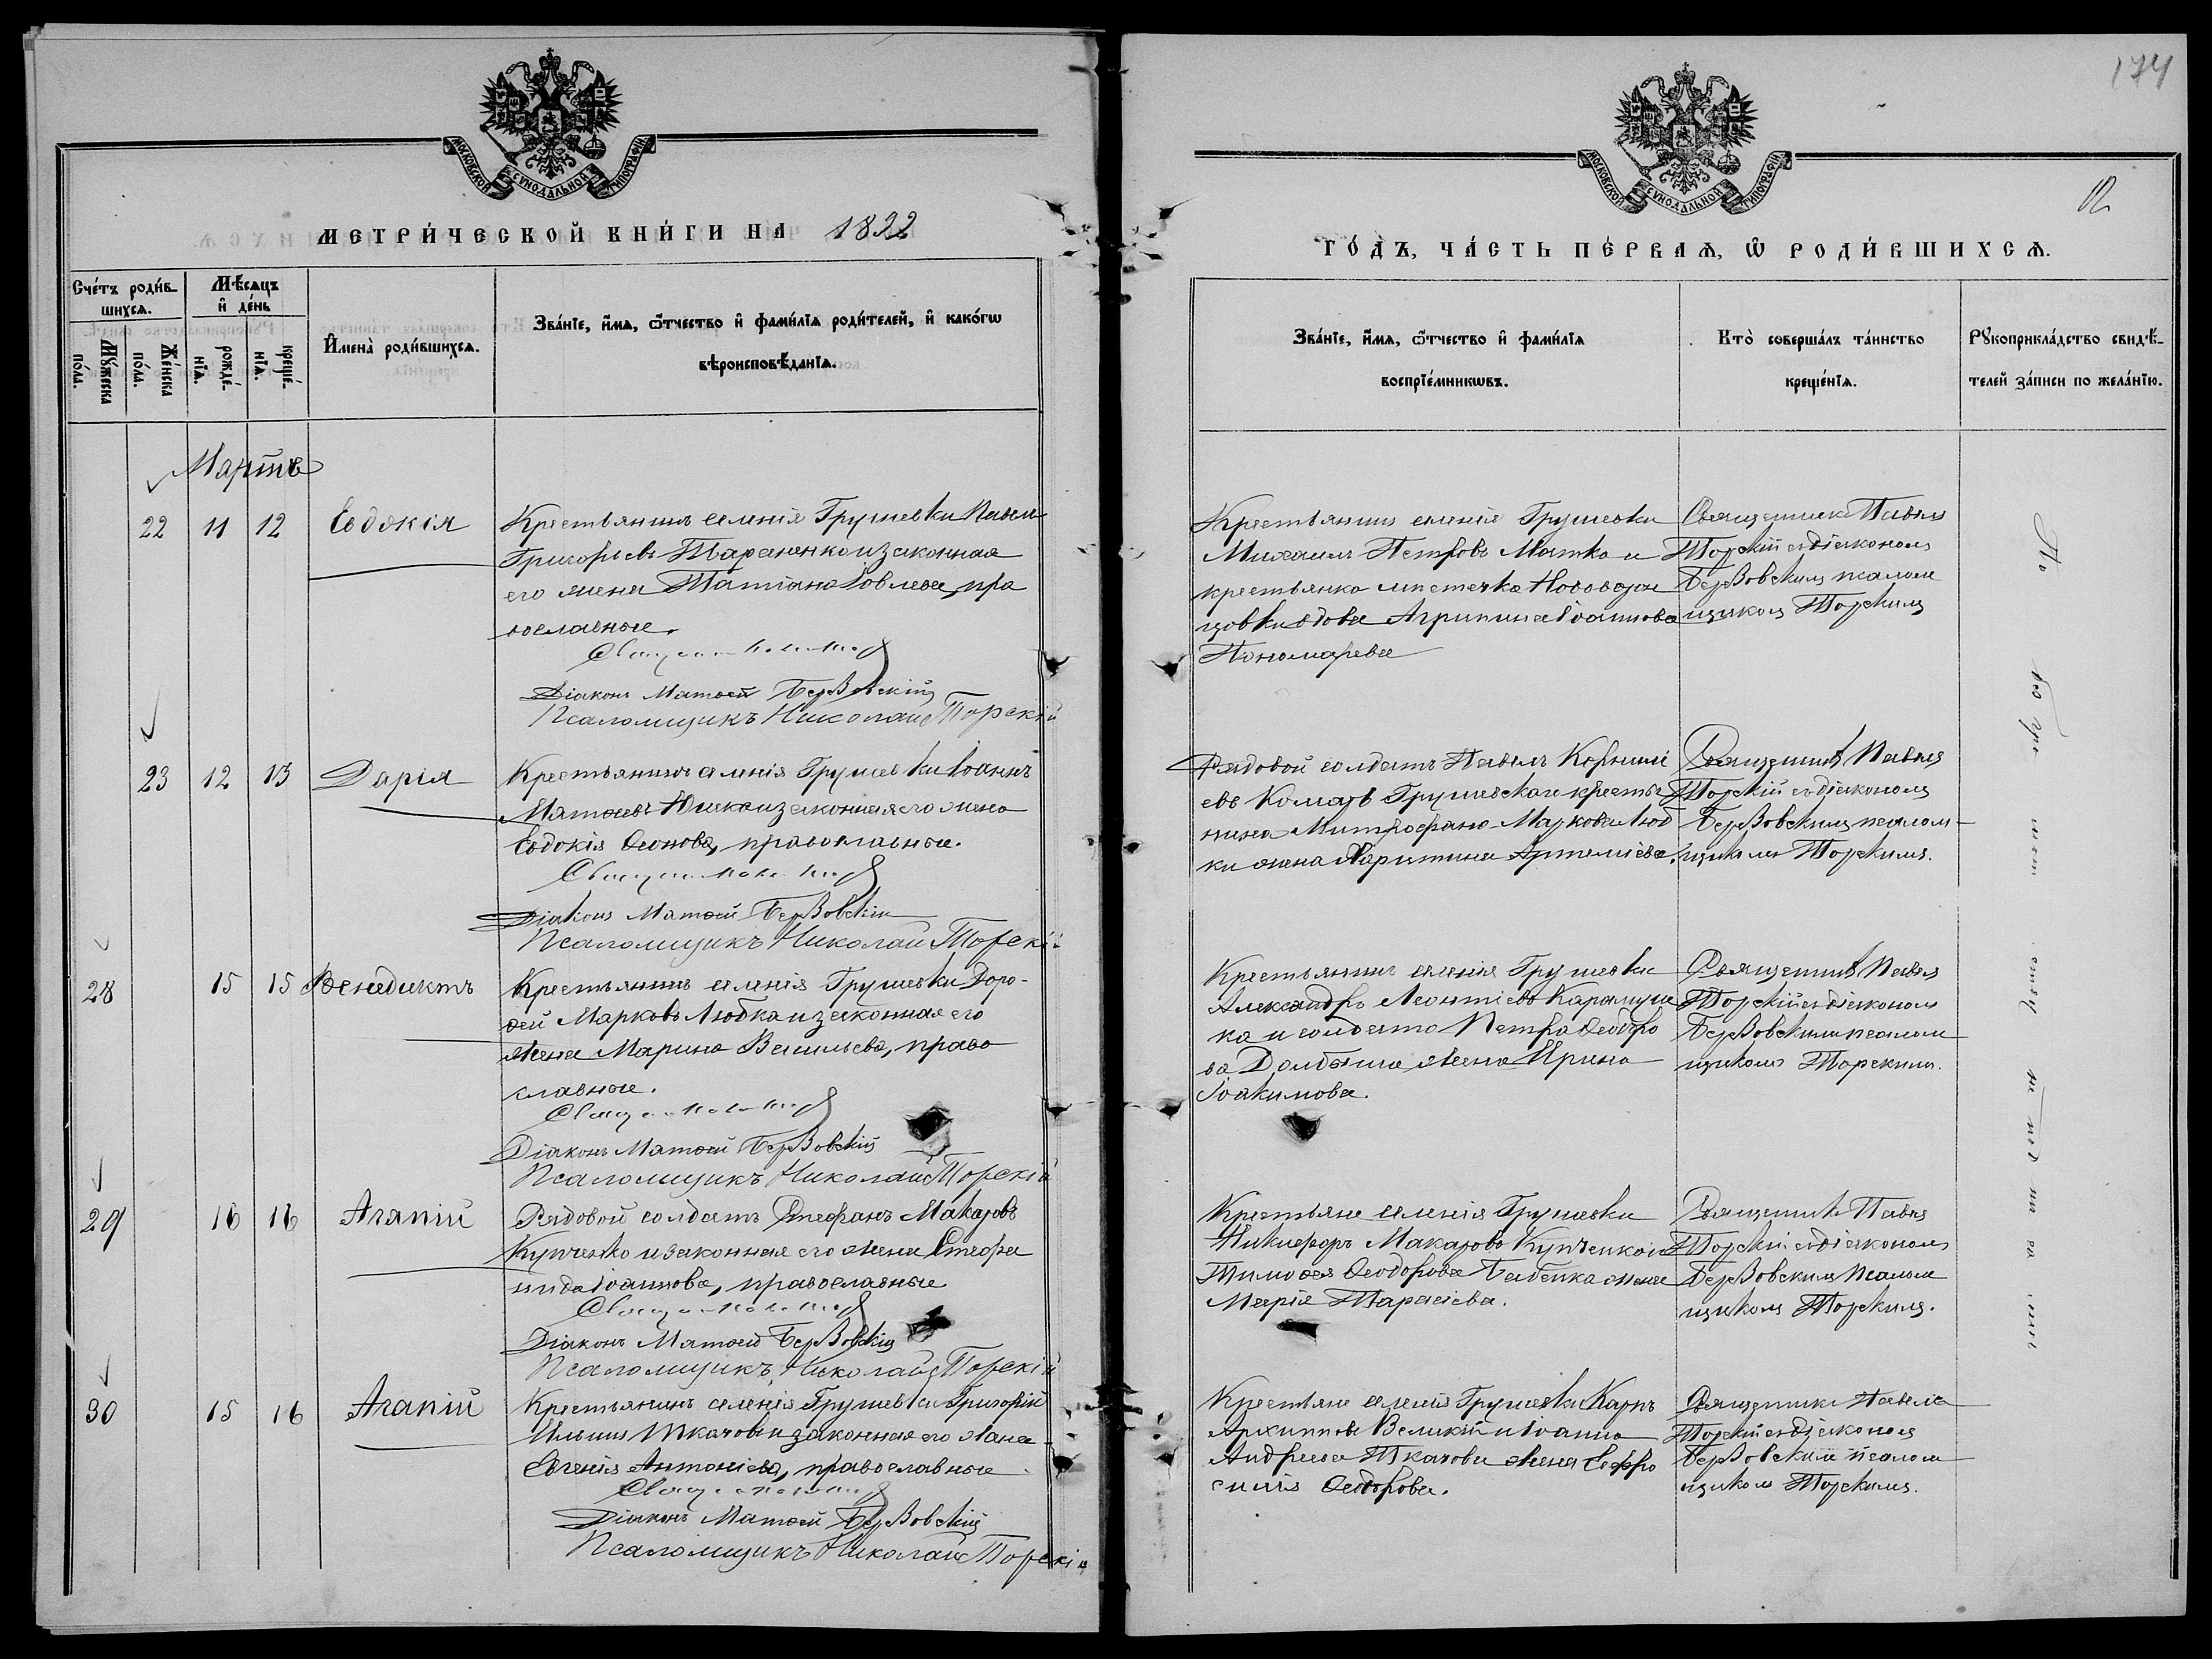 174
12
МОСКОВСКОЙ СѴНОДАЛЬНОЙ ТИПОГРАФІИ
МЕТРИ́ЧЕСКОЙ КНИ́ГИ НА 1892
Сче́тъ роди́вшихсѧ.
Мꙋ́жеска по́ла.
Же́нска по́ла.
Мѣ́сѧцъ и҆ де́нь
рожде́нїѧ.
креще́нїѧ.
И҆мена̀ роди́вшихсѧ.
Зва́нїе, и҆́мѧ, ѻ҆́тчество и҆ фами́лїѧ роди́телей, и҆ како́гѡ
вѣроисповѣ́данїѧ.
Мартъ
22 11 12 Евдокія
Крестьянинъ селенія Грушевки Павелъ
Григорьевъ Тараненко и законная
его жена Татіана Іовлева, пра
вославные.
Діаконъ Матѳей
Псаломщикъ Николай Торскій
23 12 13 Дарія
Крестьянинъ селенія Грушевки Іоаннъ
Матѳеевъ и законная его жена
Евдокія, православные.
Діаконъ Матѳей
Псаломщикъ Николай Торскій
28 15 15 Венедиктъ
Крестьянинъ селенія Грушевки Доро-
ѳей Марковъ Любка и законная его
жена Марина Васильева, право
славные.
Діаконъ Матѳей
Псаломщикъ Николай Торскій
29 16 16 Агапій
Рядовой солдатъ Стефанъ Макаровъ
Купченко и законная его жена Стефа
нида Іоаннова, православные
Діаконъ Матѳей
Псаломщикъ Николай Торскій
30 15 16 Агапій
Крестьянинъ селенія Грушевки Григорій
Ильинъ Ткачовъ и законная его жена
Евгенія Антоніева, православные
Діаконъ Матѳей
Псаломщикъ Николай Торскій
МОСКОВСКОЙ СѴНОДАЛЬНОЙ ТИПОГРАФІИ
ГО́ДЪ, ЧА́СТЬ ПЕ́РВАѦ, Ѡ҆ РОДИ́ВШИХСѦ.
Зва́нїе, и҆́мѧ, ѻ҆́тчество и҆ фами́лїѧ
воспрїе́мникѡвъ.
Кто̀ соверша́лъ та́инство
креще́нїѧ.
Рꙋкоприкла́дство свидѣ́-
телей за́писи по жела́нїю.
Крестьянинъ селенія Грушевки
Михаилъ Петровъ и
крестьянка мѣстечка Нововорон
цовки вдова Агрипина Іоаннова
Пономарева
Священникъ Павелъ
Торскій съ діакономъ
псалом
щикомъ Торскимъ
Рядовой солдатъ Павелъ Корнилі
евъ Комаръ Грушевскаго крестья
нина Митрофана Маркова Люб
ки жена Харитина Артеміева.
Священникъ Павелъ
Торскій съ діакономъ
псалом-
щикомъ Торскимъ.
Крестьянинъ селенія Грушевки
Александръ Леонтіевъ Карамуш
ка и солдата Петра Ѳеодоро
ва жена Ирина
Іоакимова.
Священникъ Павелъ
Торскій съ діакономъ
псалом
щикомъ Торскимъ.
Крестьяне селенія Грушевки
Никифоръ Макаровъ Купченко и
Тимоѳея Ѳеодорова Бабенка жена
Марія Тарасіева.
Священникъ Павелъ
Торскій съ діакономъ
псалом
щикомъ Торскимъ.
Крестьяне селенія Грушевки Карпъ
Архиповъ Великій и Іоанна
Андреева Ткачова жена Евфро
синія Ѳеодорова.
Священникъ Павелъ
Торскій съ діакономъ
псалом
щикомъ Торскимъ.